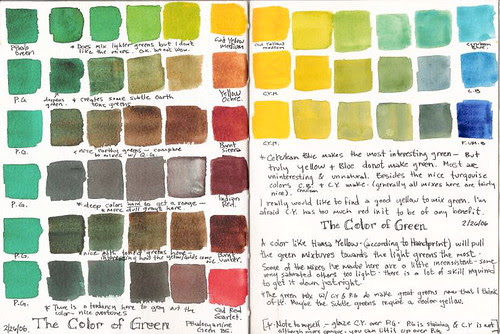 Phthalo Green
Cad Yellow Medium
* Does mix lighter greens but I don't
like the mixes. O.K. but not wow.
P.G.
deepens green
* creates some subtle earth
tone greens
Yellow Ochre
P.G.
* nice earthy greens — compare
to mixes w/ Q.G.
Burnt Sienna
P.G.
* deep colors hard to get a range —
* more dull grays here
Indian Red
P.G.
* nice olive toned greens here
Burnt Umber
P.G.
* There is a tendency here to gray out the
color — nice overtones
Cad Red Scarlet
2/26/06
The Color of Green
Phthalocyanine
Green BS.
Cad Yellow
medium
Cerulean Blue
C.Y.M.
C.B.
C.Y.M.
F. UM. B
* Cerulean Blue makes the most interesting green — But
truly yellow + Blue do not make green. Most are
uninteresting & unnatural. Besides the nice turquoise
colors C.B. + C.Y. make. (generally all mixes here are fairly
nice). Cerulean
I really would like to find a good yellow to mix green. I'm
afraid C.Y. has too much red in it to be of any benefit.
The Color of Green
2/26/06
A color like Hansa Yellow — (according to Handprint) will pull
the green mixtures towards the light greens the most —
Some of the mixes I've made here are a little inconsistent — some
very saturated others too light — there is a lot of skill required
to get it down just right.
* The green mix w/ C.Y & P.G do make great greens now that I think
of it. Maybe the subtle greens require a cooler yellow.
* Note to myself — glaze C.Y. over P.G. P.G is staining & C.Y. is not